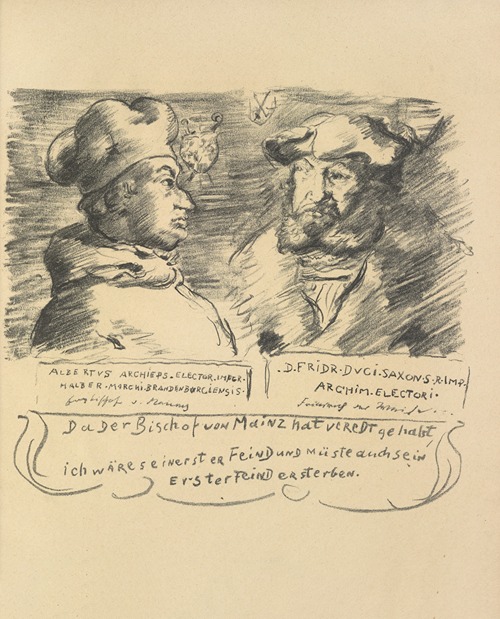 ALBERTVS ARCHIEPS. ELECTOR. IMPER.
HALBER. MORCHI. BRANDENBURGIENSIS.
. D. FRIDR. DVCI. SAXON. S. R. IMP.
ARCHIM. ELECTORI.
Da Der Bischof von Mainz hat veredt gehabt
ich wäre sein erster Feind und müste auch sein
Erster Feind ersterben.